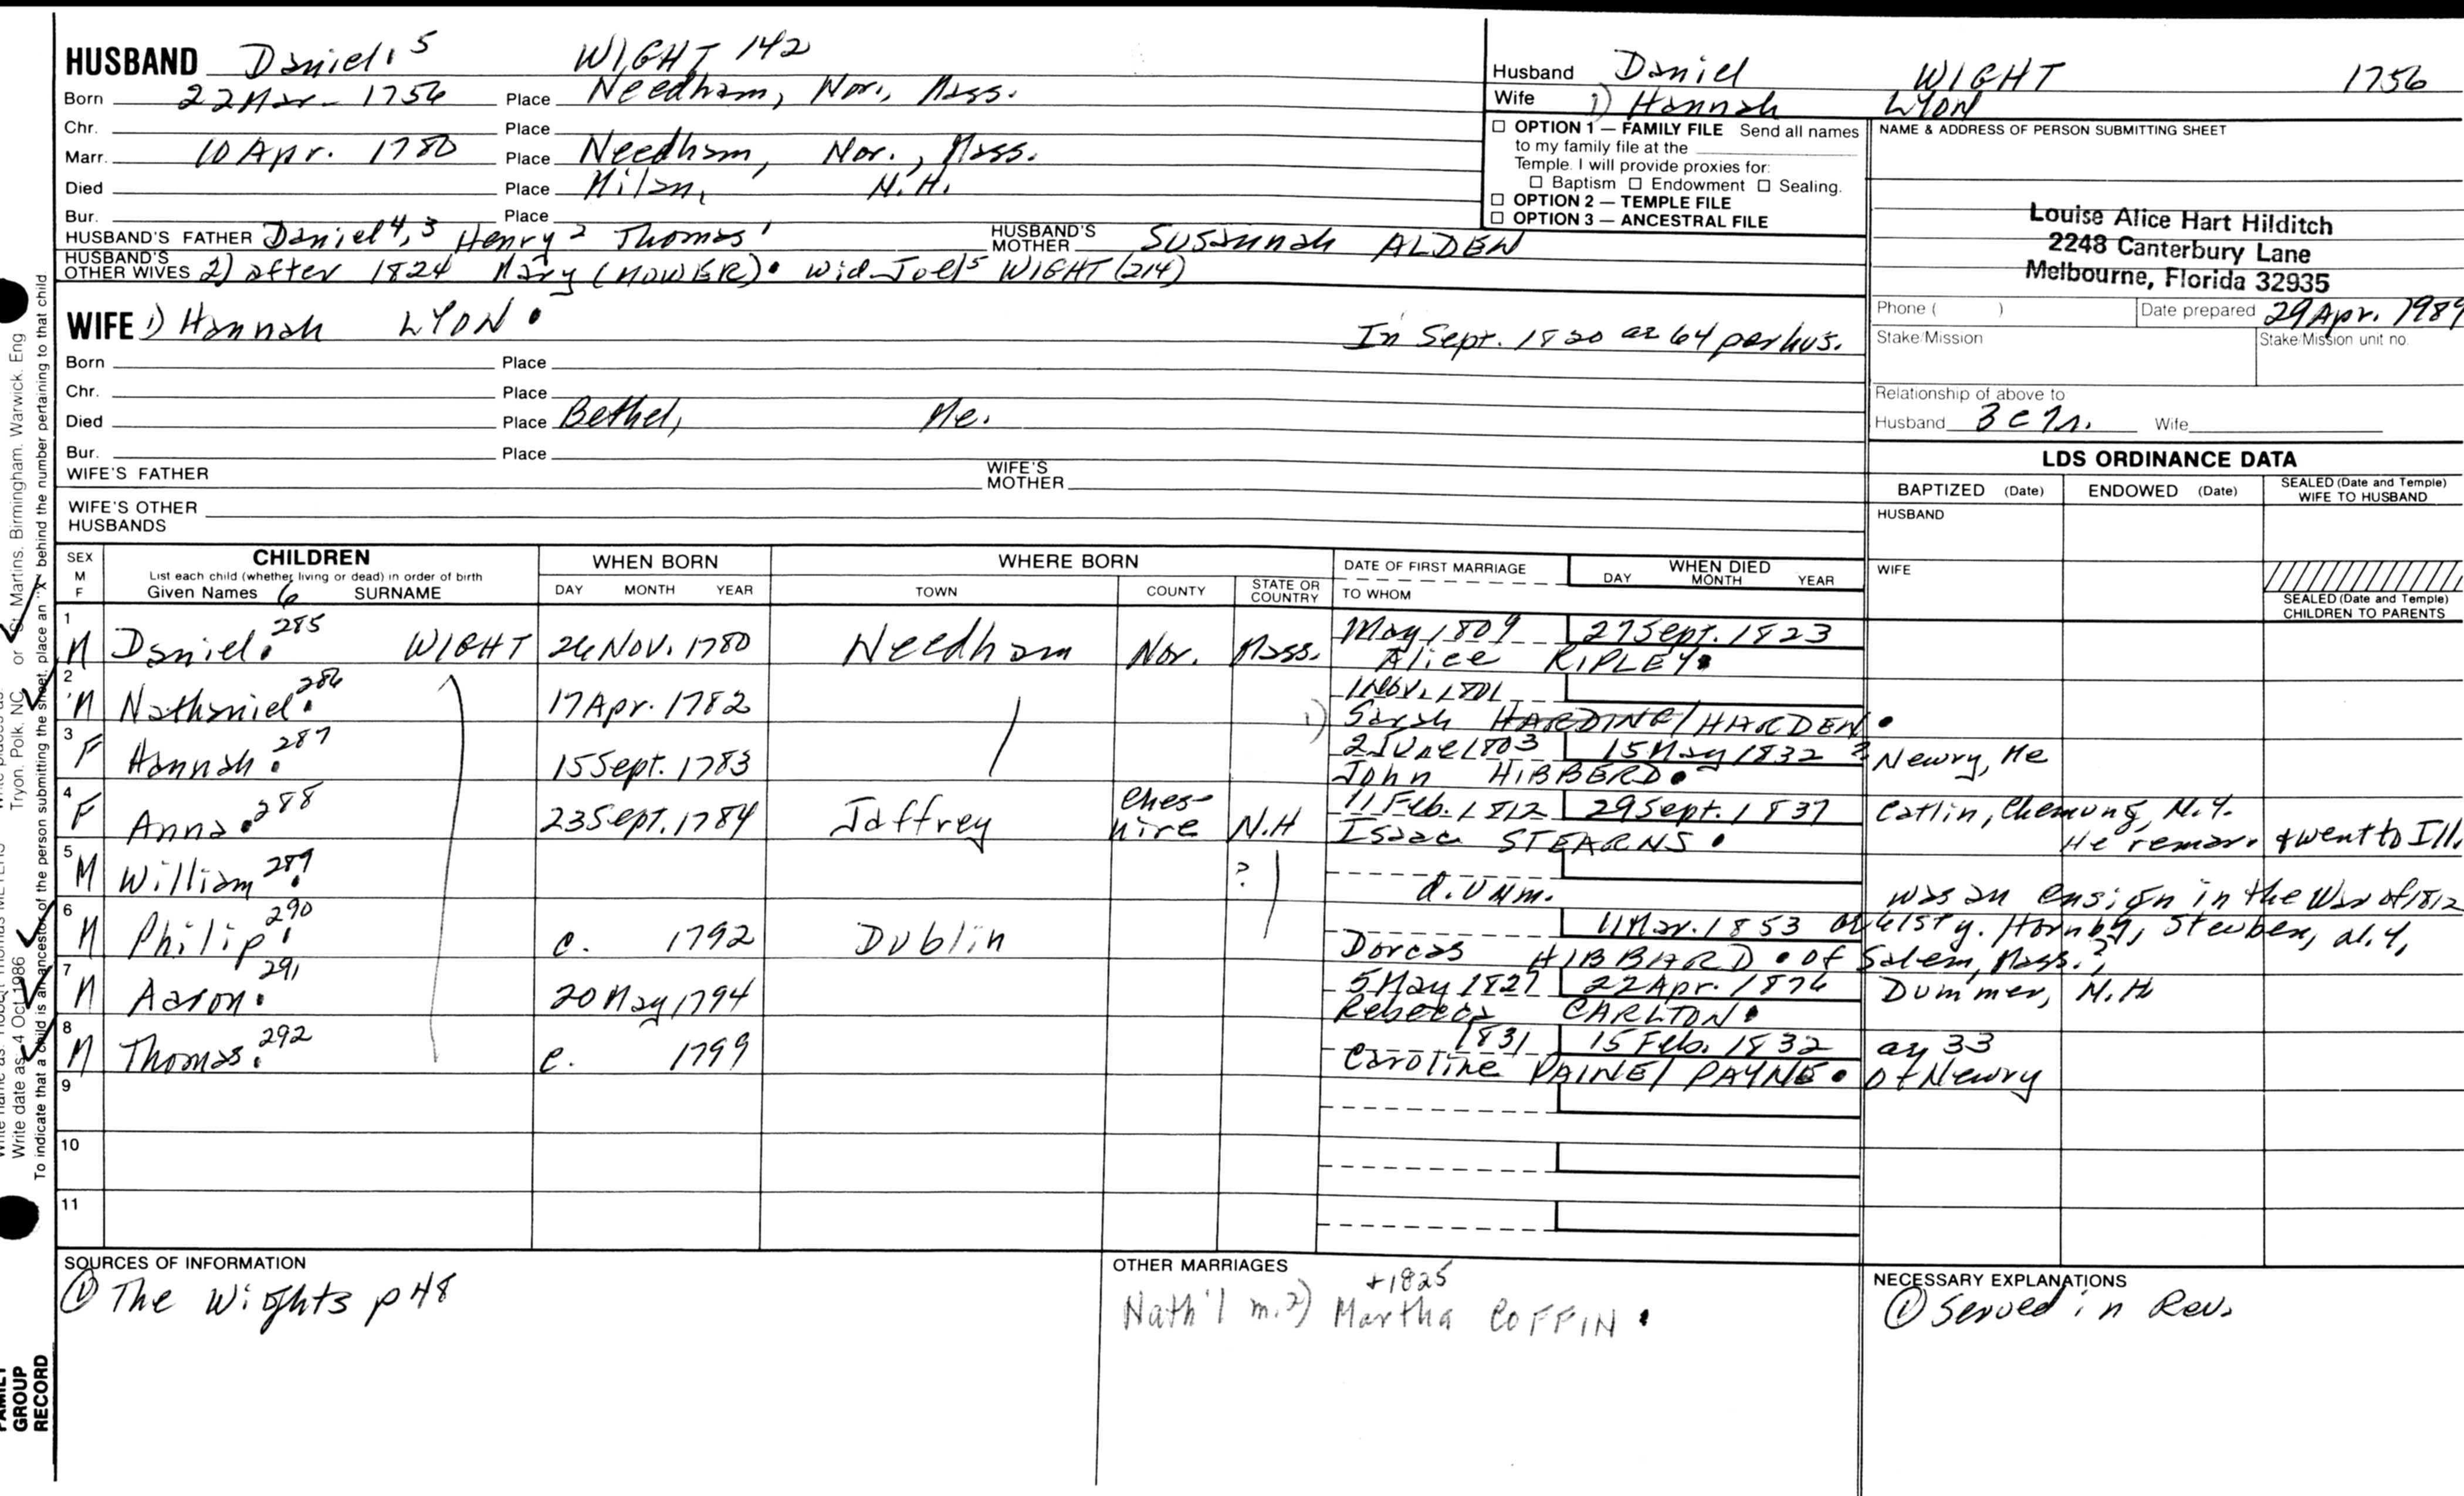 HUSBAND Daniel. 5 WIGHT 142
Born 22 Mar. 1756 Place Needham, Nor., Mass.
Chr. Place
Marr. 10 Apr. 1780 Place Needham, Nor., Mass.
Died Place Milan, N.H.
Bur. Place
HUSBAND'S FATHER Daniel 4,3 Henry 2 Thomas 1 HUSBAND'S MOTHER Susannah ALDEN
HUSBAND'S OTHER WIVES 2) after 1824 Mary (MOWER). wid Joel 5 WIGHT (214)
WIFE 1) Hannah LYON. In Sept. 1820 ae 64 per hus.
Born Place
Chr. Place
Died Place Bethel, Me.
Bur. Place
WIFE'S FATHER WIFE'S MOTHER
WIFE'S OTHER HUSBANDS
Husband Daniel WIGHT 1756
Wife 1) Hannah LYON
☐ OPTION 1 — FAMILY FILE Send all names
to my family file at the
Temple. I will provide proxies for:
☐ Baptism ☐ Endowment ☐ Sealing.
☐ OPTION 2 — TEMPLE FILE
☐ OPTION 3 — ANCESTRAL FILE
NAME & ADDRESS OF PERSON SUBMITTING SHEET
Louise Alice Hart Hilditch
2248 Canterbury Lane
Melbourne, Florida 32935
Phone ( ) Date prepared 29 Apr. 1989
Stake/Mission Stake/Mission unit no.
Relationship of above to
Husband Wife
LDS ORDINANCE DATA
BAPTIZED (Date) ENDOWED (Date) SEALED (Date and Temple) WIFE TO HUSBAND
HUSBAND
WIFE
SEALED (Date and Temple)
CHILDREN TO PARENTS
SEX M F
CHILDREN
List each child (whether living or dead) in order of birth
Given Names 6 SURNAME
WHEN BORN
DAY MONTH YEAR
WHERE BORN
TOWN COUNTY STATE OR COUNTRY
DATE OF FIRST MARRIAGE
TO WHOM
WHEN DIED
DAY MONTH YEAR
1 M Daniel. 285 WIGHT 26 Nov. 1780 Needham Nor. Mass. May 1809 27 Sept. 1823
Alice RIPLEY.
2 M Nathaniel. 286 17 Apr. 1782 1 Nov. 1801
1) Sarah HARDING/HARDEN.
3 F Hannah. 287 15 Sept. 1783 2 June 1803 15 May 1832 ? Newry, Me
John HIBBERD.
4 F Anna. 288 23 Sept. 1784 Jaffrey Ches-hire N.H 11 Feb. 1812 29 Sept. 1837 Catlin, Chemung, N.Y.
Isaac STEARNS. He remar. & went to Ill.
5 M William. 289 ? d. unm. was an ensign in the War of 1812
6 M Philip. 290 c. 1792 Dublin 11 Mar. 1853 ae 61 Hornby, Steuben, N.Y,
Dorcas HIBBARD. of Salem, Mass.?
7 M Aaron. 291 20 May 1794 5 May 1827 22 Apr. 1876 Dummer, N.H.
Rebecca CARLTON.
8 M Thomas. 292 c. 1799 1831 15 Feb. 1832 ae 33
Caroline PAINE/PAYNE. of Newry
9
10
11
SOURCES OF INFORMATION
① The Wights p 48
OTHER MARRIAGES
+1825
Nath'l m. 2) Martha COFFIN.
NECESSARY EXPLANATIONS
① Served in Rev.
or St. Martins. Birmingham. Warwick. Eng
Tryon. Polk. NC
Write date as 4 Oct 1986
To indicate that a child is an ancestor of the person submitting the sheet, place an "X" behind the number pertaining to that child
FAMILY
GROUP
RECORD